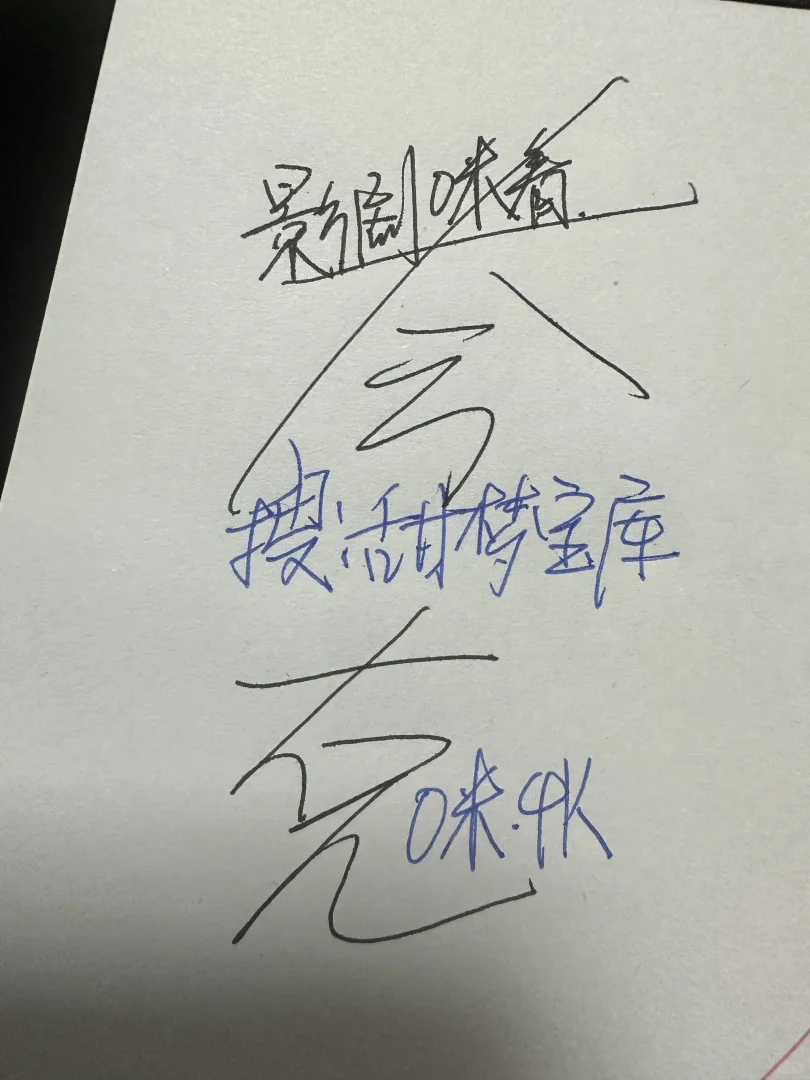 影剧咪看.
会
搜:甜梦宝库
克
咪.4K